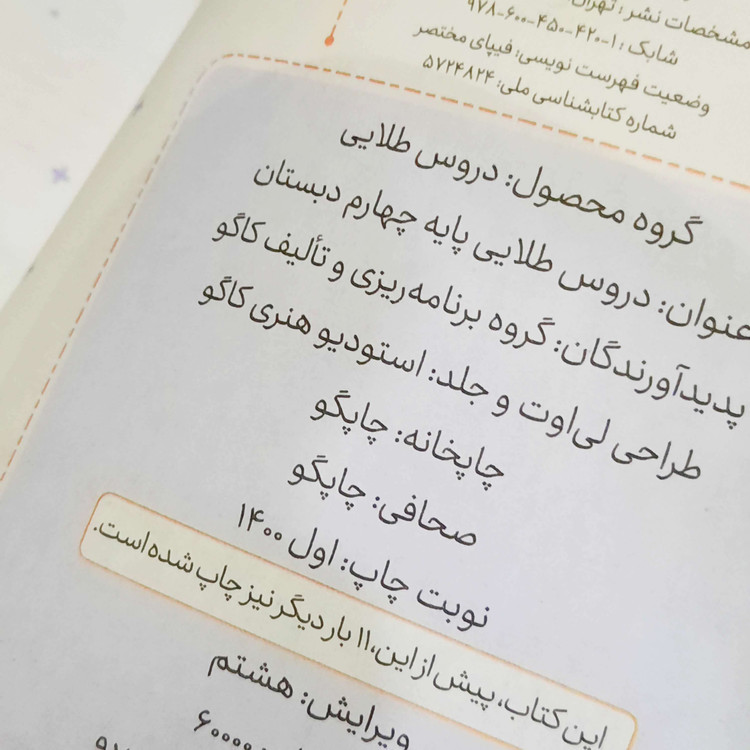 مشخصات نشر: تهران
شابک: ۹۷۸-۶۰۰-۴۵۰-۴۲۰-۱
وضعیت فهرست نویسی: فیپای مختصر
شماره کتابشناسی ملی: ۵۷۲۴۸۲۴
گروه محصول: دروس طلایی
عنوان: دروس طلایی پایه چهارم دبستان
پدیدآورندگان: گروه برنامه‌ریزی و تألیف کاگو
طراحی لی‌اوت و جلد: استودیو هنری کاگو
چاپخانه: چاپگو
صحافی: چاپگو
نوبت چاپ: اول ۱۴۰۰
این کتاب، پیش از این، ۱۱ بار دیگر نیز چاپ شده است.
ویرایش: هشتم